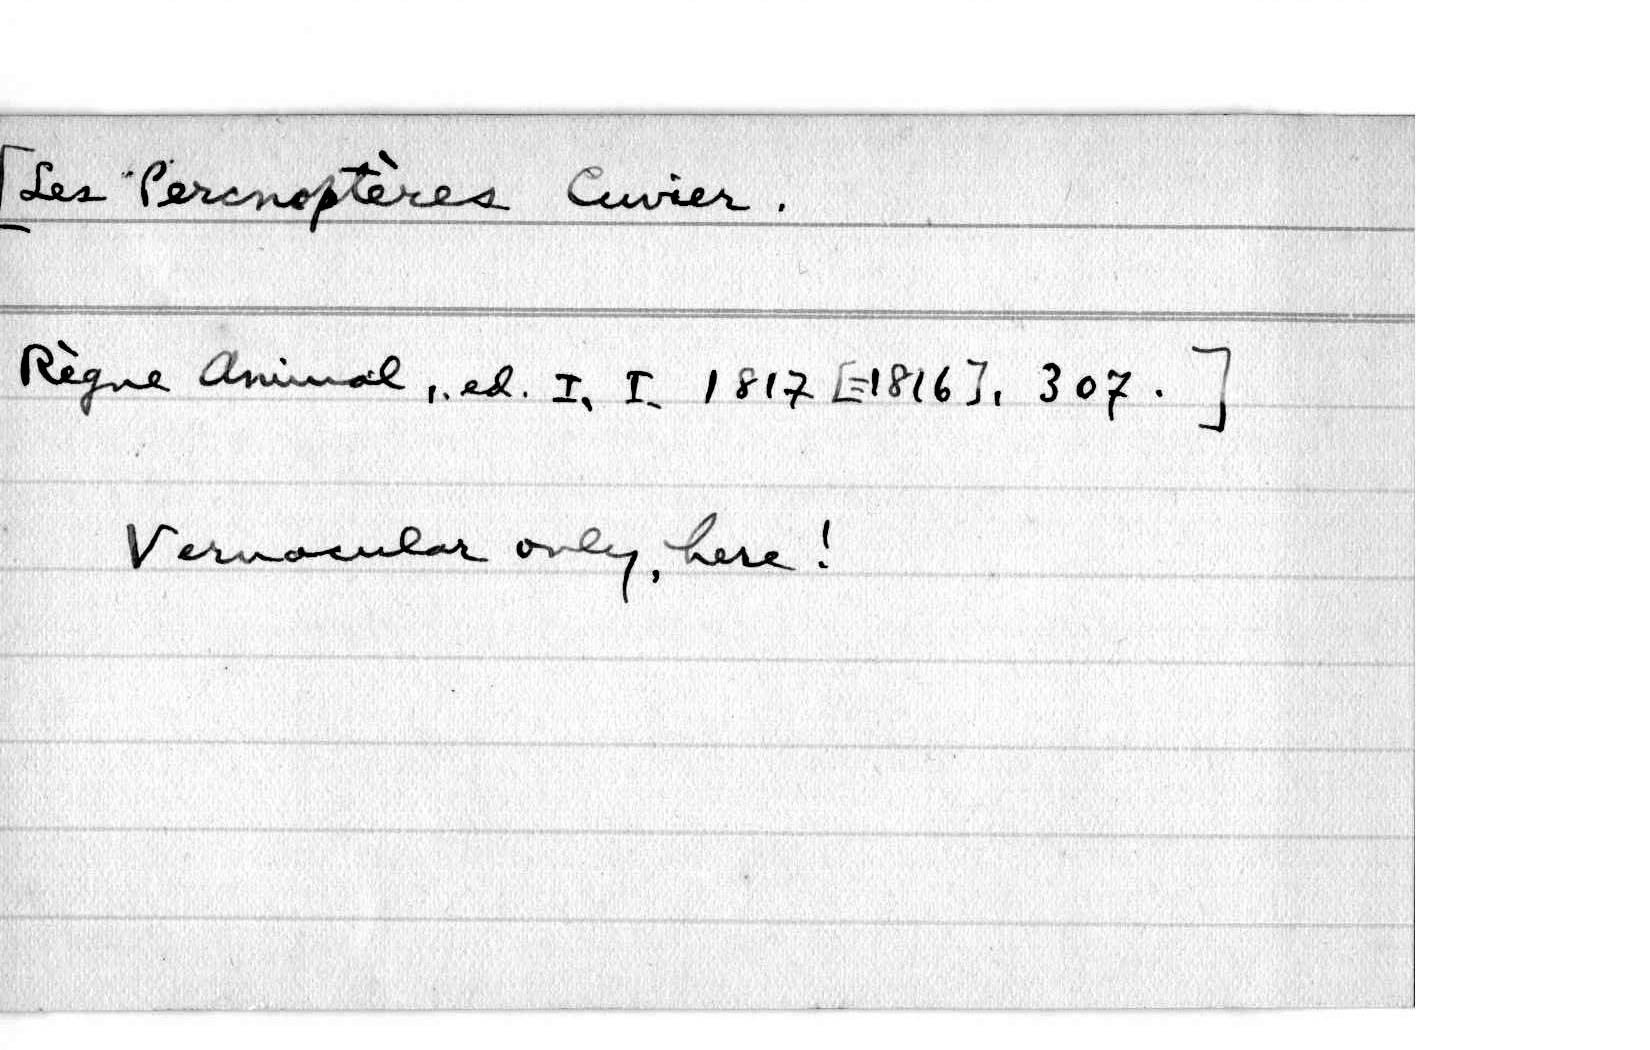 [Les Percnoptères Cuvier.
Règne Animal, ed. I, I. 1817 [=1816], 307.]
Vernacular only, here!